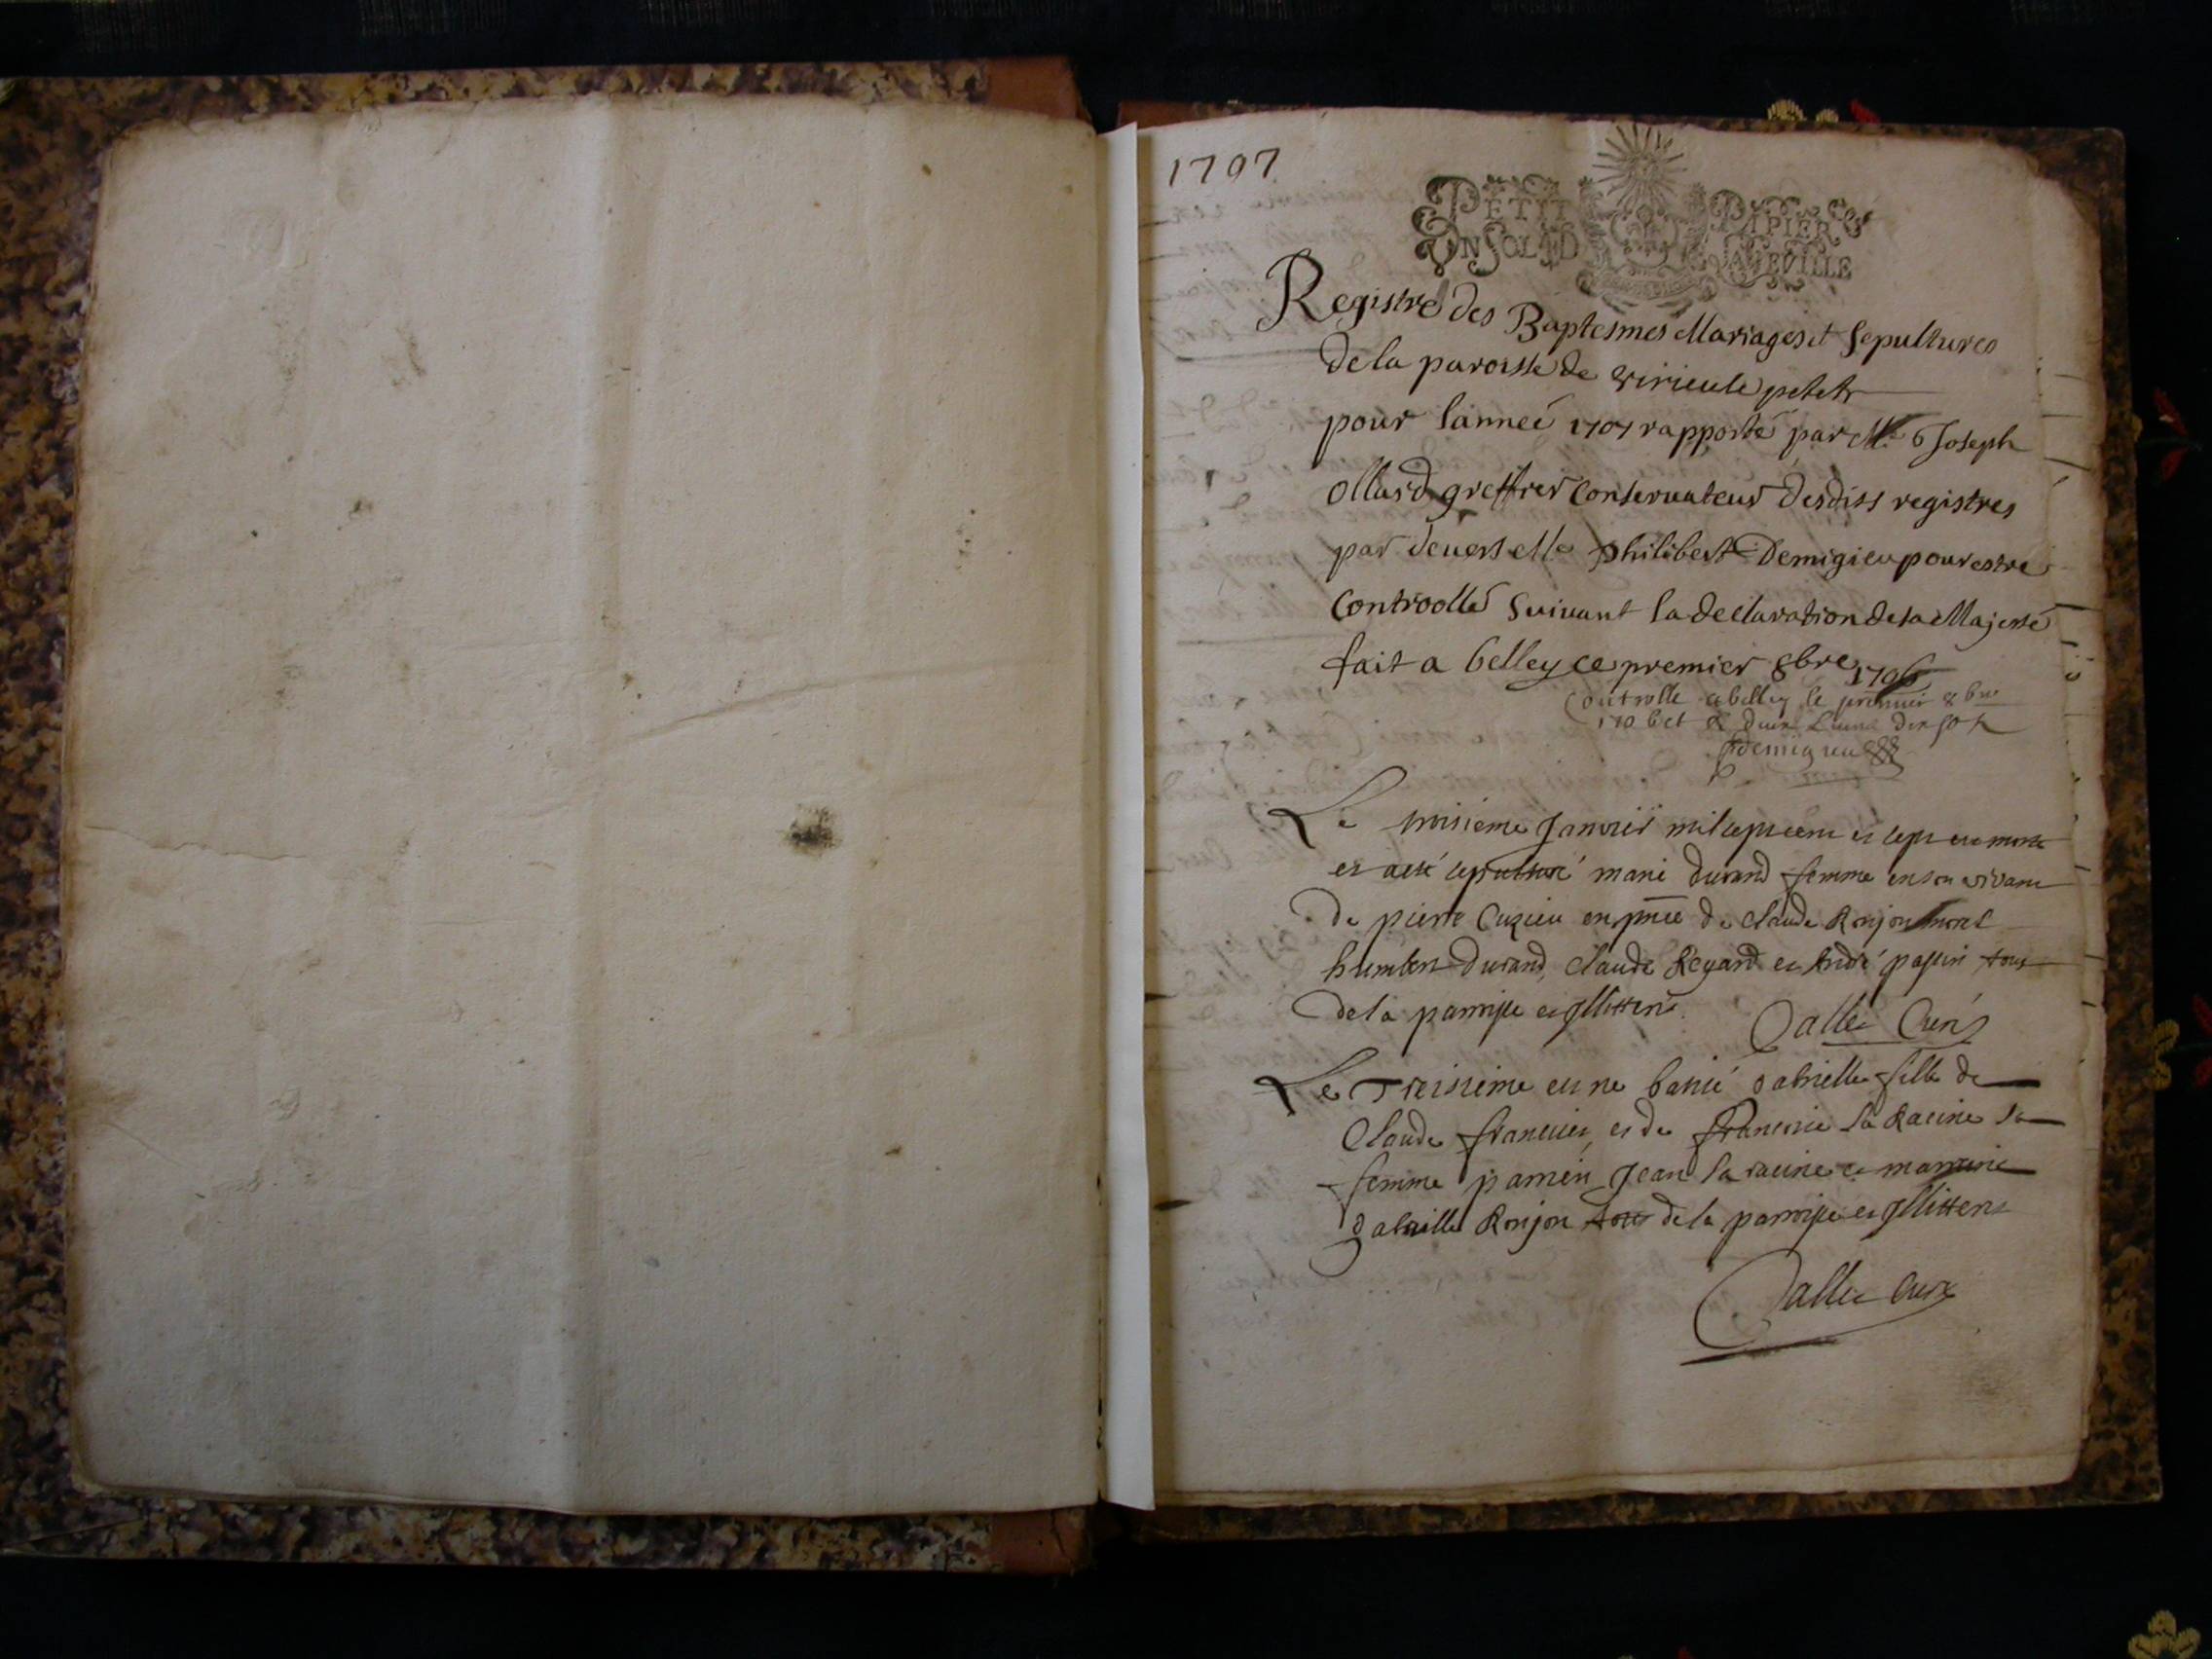 1707
PETIT PAPIER
UN SOL 4 D LA FEUILLE
Registre des Baptesmes Mariages et Sepultures
de la paroisse de virieule petit
pour lanneé 1707 rapporté par Mr Joseph
ollard greffier Conservateur desdits registres
par devers Me philibert Demigieu pour estre
Controollé Suivant la declaration de sa Majesté
fait a belley ce premier 8bre 1706
Controlle a belley le premier 8bre
demigieu
Le troisieme Janvier mil sept cent et sept est morte
et a esté sepulturé marie durand femme en son vivant
de pierre Cuzieu en pnce de Claude Ronjon
humbert durand, Claude Regard et André papin tous
de la paroisse et Illitteres.
Curé
Le Treisieme est né batisé gabrielle fille de
Claude francuier et de francoise la Racine sa
femme parrein Jean la racine et marreine
gabrielle Ronjon tous de la paroisse et Illitteres
Curé